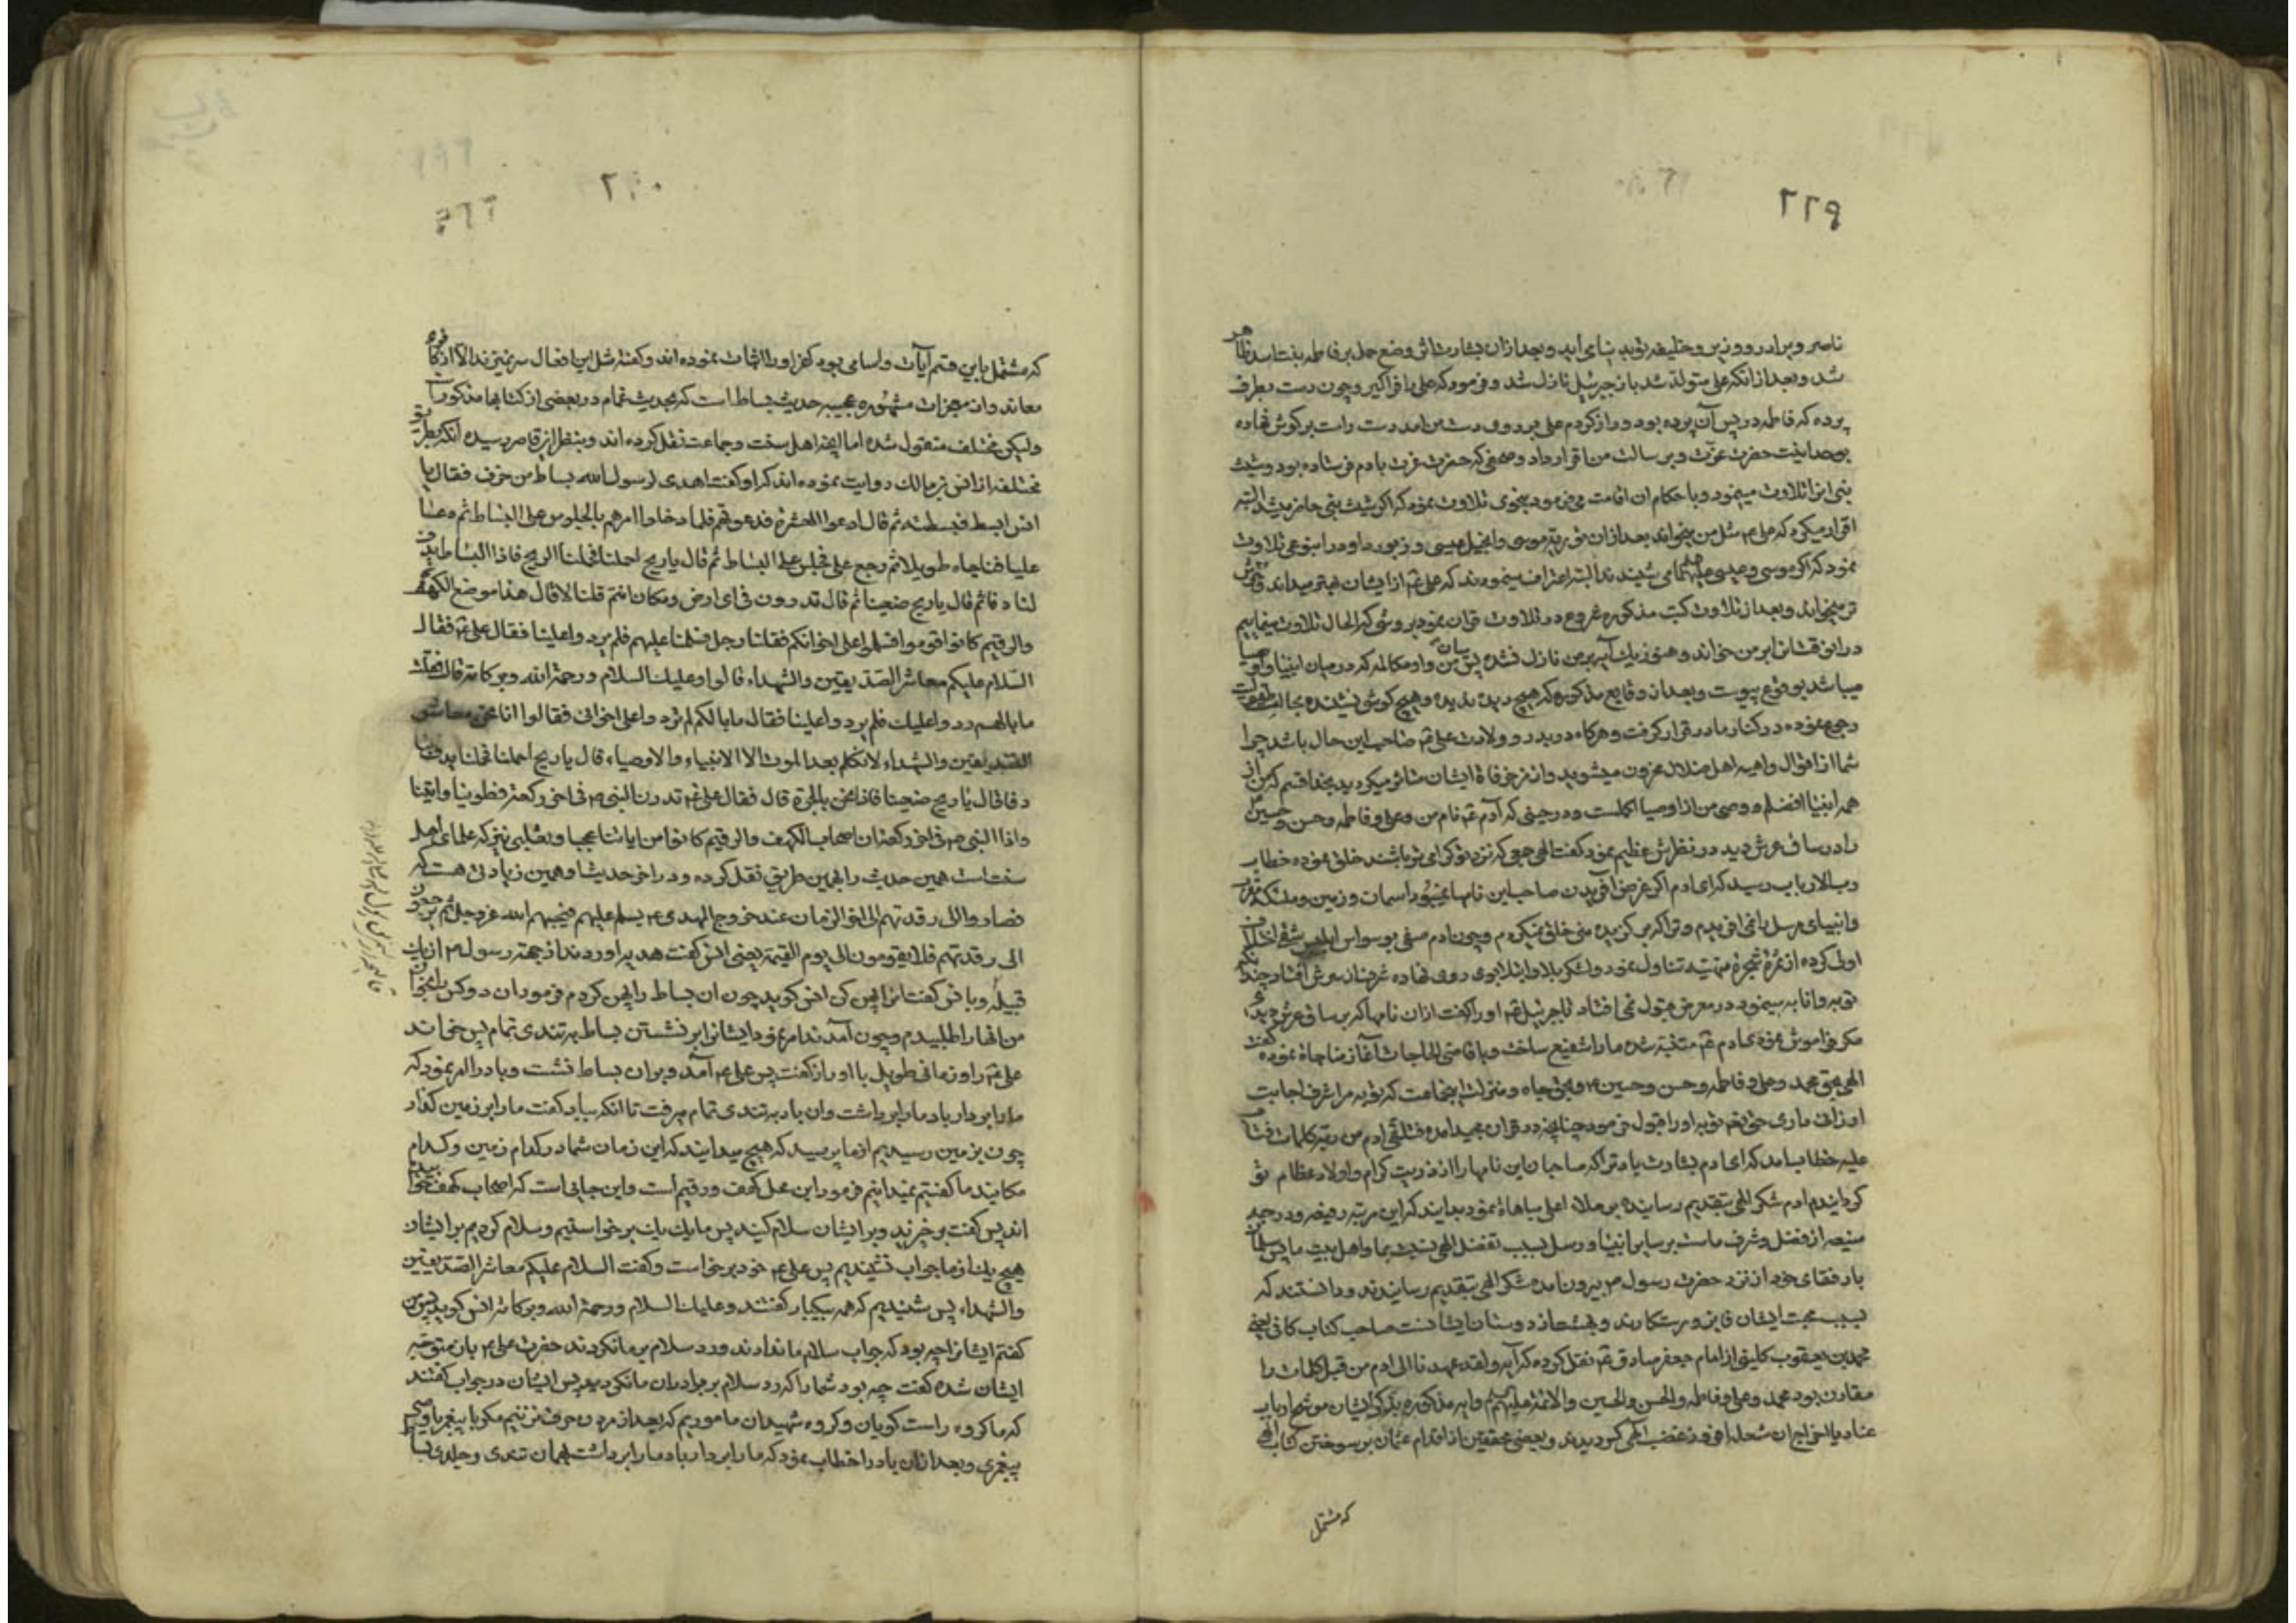 ۲۲۹
ناصر و برادر و وزیر و خلیفه توبد بنای اید و بعد ازان بشارت اثر وضع حمل بر فاطمه بنت اسد ظاهر
شد و بعد از انکه علی متولد شد باز جبرئیل نازل شد و فرمود که علی را فراگیر و چون دست بطرف
پرده که فاطمه در پس آن پرده بود دراز کردم علی بر روی دست من امد دست راست بر کوش نهاده
بوحدانیت حضرت عزت و برسالت من اقرار داد و صحفی که حضرت عزت بادم فرستاده بود و شیث
بنی انرا تلاوت مینمود و با حکام ان اقامت می فرمود بنحوی تلاوت نموده که اکر شیث بنی حاضر میشد البته
اقرار میکرد که علی مثل من میخواند بعد ازان توریة موسی و انجیل عیسی و زبور داود را بنوعی تلاوت
نمود که اکر موسی و عیسی علیهما می شنیدند البته اعتراف مینمودند که علی از ایشان بهتر میداند و خوش
تر میخواند و بعد از تلاوت کتب مذکوره شروع در تلاوت قران نمود بروشی که الحال تلاوت مینماییم
در ان نقش انرا بر من خواند و هنوز یک آیه بر من نازل نشده پس میان من و او مکالمه که در میان انبیا و اوصیا
میباشد بوقوع پیوست و بعد از وقایع مذکوره که هیچ دیده ندیده و هیچ کوش نشنیده بحالت طفولیت
رجوع نموده در کنار مادر قرار کرفت و هرکاه در بدو ولادت علی صاحب این حال باشد چرا
شما از اقوال واهیه اهل ضلال محزون میشوید و از مزخرفات ایشان متاثر میکردید بخدا قسم که من از
همه انبیا افضلم و وصی من از اوصیا اکملست و در حینی که آدم نام من و علی و فاطمه و حسن و حسین
را در ساق عرش دید در نظرش عظیم نمود کفت الهی جمعی که نزد تو کرامی تر باشند خلق نموده خطاب
رب الارباب رسید که ای ادم اکر غرض افریدن صاحب این نامها نمیبود اسمان و زمین و ملئکه مقرب
و انبیای مرسل را نمی افریدم و ترا که بر کزیده منی خلق نمیکردم و چون ادم صفی بوسواس ابلیس
اولی کرده از ثمرهٔ شجرهٔ منهیه تناول نمود و لشکر بلا و ابتلا بوی روی نهاده
توبه و انابه مینمود در معرض قبول نمی افتاد تا جبرئیل او را کفت ازان نامها که بر ساق عرش دیدی
مکر فراموش نموده ادم متنبه شده ما را شفیع ساخت و با قاضی الحاجات آغاز مناجاة نموده کفت
الهی بحق محمد و علی و فاطمه و حسن و حسین و بحق جاه و منزلت اینجماعت که توبه مرا شرف اجابت
ارزانی داری حق تعالی توبه او را قبول فرمود چنانچه در قران مجید امده فتلقی ادم من ربه کلمات فتاب
علیه خطاب امد که ای ادم بشارت باد ترا که صاحبان این نامها را از ذریت کرام و اولاد عظام تو
کردانیدم ادم شکر الهی بتقدیم رسانیده بر ملاء اعلی مباهاة نمود بدانید که این مرتبه رفیعه و درجه
منیعه از فضل و شرف ماست بر سایر انبیا و رسل بسبب تفضل الهی نسبت بما و اهل بیت ما پس سلمان
با رفقای خود از نزد حضرت رسول بیرون امده شکر الهی بتقدیم رسانیدند و دانستند که
بسبب محبت ایشان فایز و رستکارند و بهشت از دوستان ایشانست صاحب کتاب کافی یعنی
محمد بن یعقوب کلینی از امام جعفر صادق نقل کرده که آیه و لقد عهدنا الی ادم من قبل کلمات را
مقارن بود محمد و علی و فاطمه و الحسن و الحسین و الائمة علیهم و ایه مذکوره بذکر ایشان موشح ارباب
عناد با اخراج ان شعله افروز غضب الهی کردیدند و بعضی محققین از اقدام عثمان بر سوختن کتاب الهی
که مشتمل
۲۳۰
که مشتمل باین قسم آیات و اسامی بود کفر او را اثبات نموده اند و کفته مثل این افعال سر نمیزند الا از کافری
معاند و از معجزات مشهوره عجیبه حدیث بساط است که بحدیث غمام در بعضی از کتابها مذکور است
ولیکن مختلف منقول شده اما انچه اهل سنت و جماعت نقل کرده اند و بنظر این قاصر رسیده آنکه بطرق
مختلفه از انس بن مالک روایت نموده اند که او کفت اهدی لرسول الله بساط من خزف فقال یا
انس ابسط فبسطته ثم قال ادعوا العشرة فدعوتهم فلما دخلوا امرهم بالجلوس علی البساط ثم دعا
علیا فناجاه طویلا ثم رجع علی فجلس علی البساط ثم قال یا ریح احملنا فحملنا الریح فاذا البساط یدف
لنا دفا ثم قال یا ریح ضعینا ثم قال تدرون فی ای ارض و مکان انتم قلنا لا قال هذا موضع الکهف
والرقیم کانوا قوموا فسلموا علی اخوانکم فقلنا رجل فسلمنا علیهم فلم یرد واعلینا فقال علی فقال
السّلام علیکم معاشر الصدّیقین والشهداء قالوا وعلیک السلام ورحمة الله وبرکاته قال فقلت
ما بالهم ردوا علیک فلم یرد واعلینا فقال ما بالکم لم تردوا علی اخوانی فقالوا انا نحن معاشر
الصدیقین والشهداء لا نکلم بعد الموت الا الانبیاء والاوصیاء قال یا ریح احملنا فحملنا یدف بنا
دفا قال یا ریح ضعینا فاذا نحن بالحرة قال فقال علی تدرکن النبی فی اخر رکعة فطوینا واتینا
واذا النبی فی اخر رکعة ان اصحاب الکهف والرقیم کانوا من ایاتنا عجبا و ثعلبی نیز که علمای اهل
سنت است همین حدیث را بهمین طریق نقل کرده و در اخر حدیث او همین زیادتی هست که
فصاروا الی رقدتهم الی اخر الزمان عند خروج المهدی یسلم علیهم فیحییهم الله عز و جل ثم یرجعون
الی رقدتهم فلا یقومون الی یوم القیمة یعنی انس کفت هدیه اوردند از جهة رسول از یک
قبیله و با من کفت انرا پهن کن انس کوید چون ان بساط را پهن کردم فرمود ان ده کس را بخوان
من انها را طلبیدم و چون آمدند امر نمود ایشانرا بر نشستن بساط به تندی تمام پس خواند
علی را و زمانی طویل با او راز کفت پس علی آمد و بران بساط نشست و باد را امر نمود که
ما را بردار باد ما را برداشت و ان باد به تندی تمام میرفت تا انکه بباد کفت ما را بر زمین کذار
چون بزمین رسیدیم از ما پرسید که هیچ میدانید که این زمان شما در کدام زمین و کدام
مکانید ما کفتیم نمیدانیم فرمود این محل کهف و رقیم است و این جایی است که اصحاب کهف خوابیده
اند پس کفت برخیزید و بر ایشان سلام کنید پس ما یک یک برخواستیم و سلام کردیم بر ایشان
هیچ یک از ما جواب نشنیدیم پس علی خود برخواست و کفت السلام علیکم معاشر الصدیقین
والشهداء پس شنیدیم که همه بیکبار کفتند وعلیک السلام ورحمة الله وبرکاته انس کوید پس من
کفتم ایشانرا چه بود که جواب سلام ما ندادند و رد سلام بر ما نکردند حضرت علی باز متوجه
ایشان شده کفت چه بود شما را که رد سلام برادران ما نکردید پس ایشان در جواب کفتند
که ما کروه راست کویان و کروه شهیدان ماموریم که بعد از مردن حرف نزنیم مکر با پیغمبر یا وصی
پیغمبری و بعد ازان باد را خطاب نمود که ما را بردار باد ما را برداشت بهمان تندی و جلدی